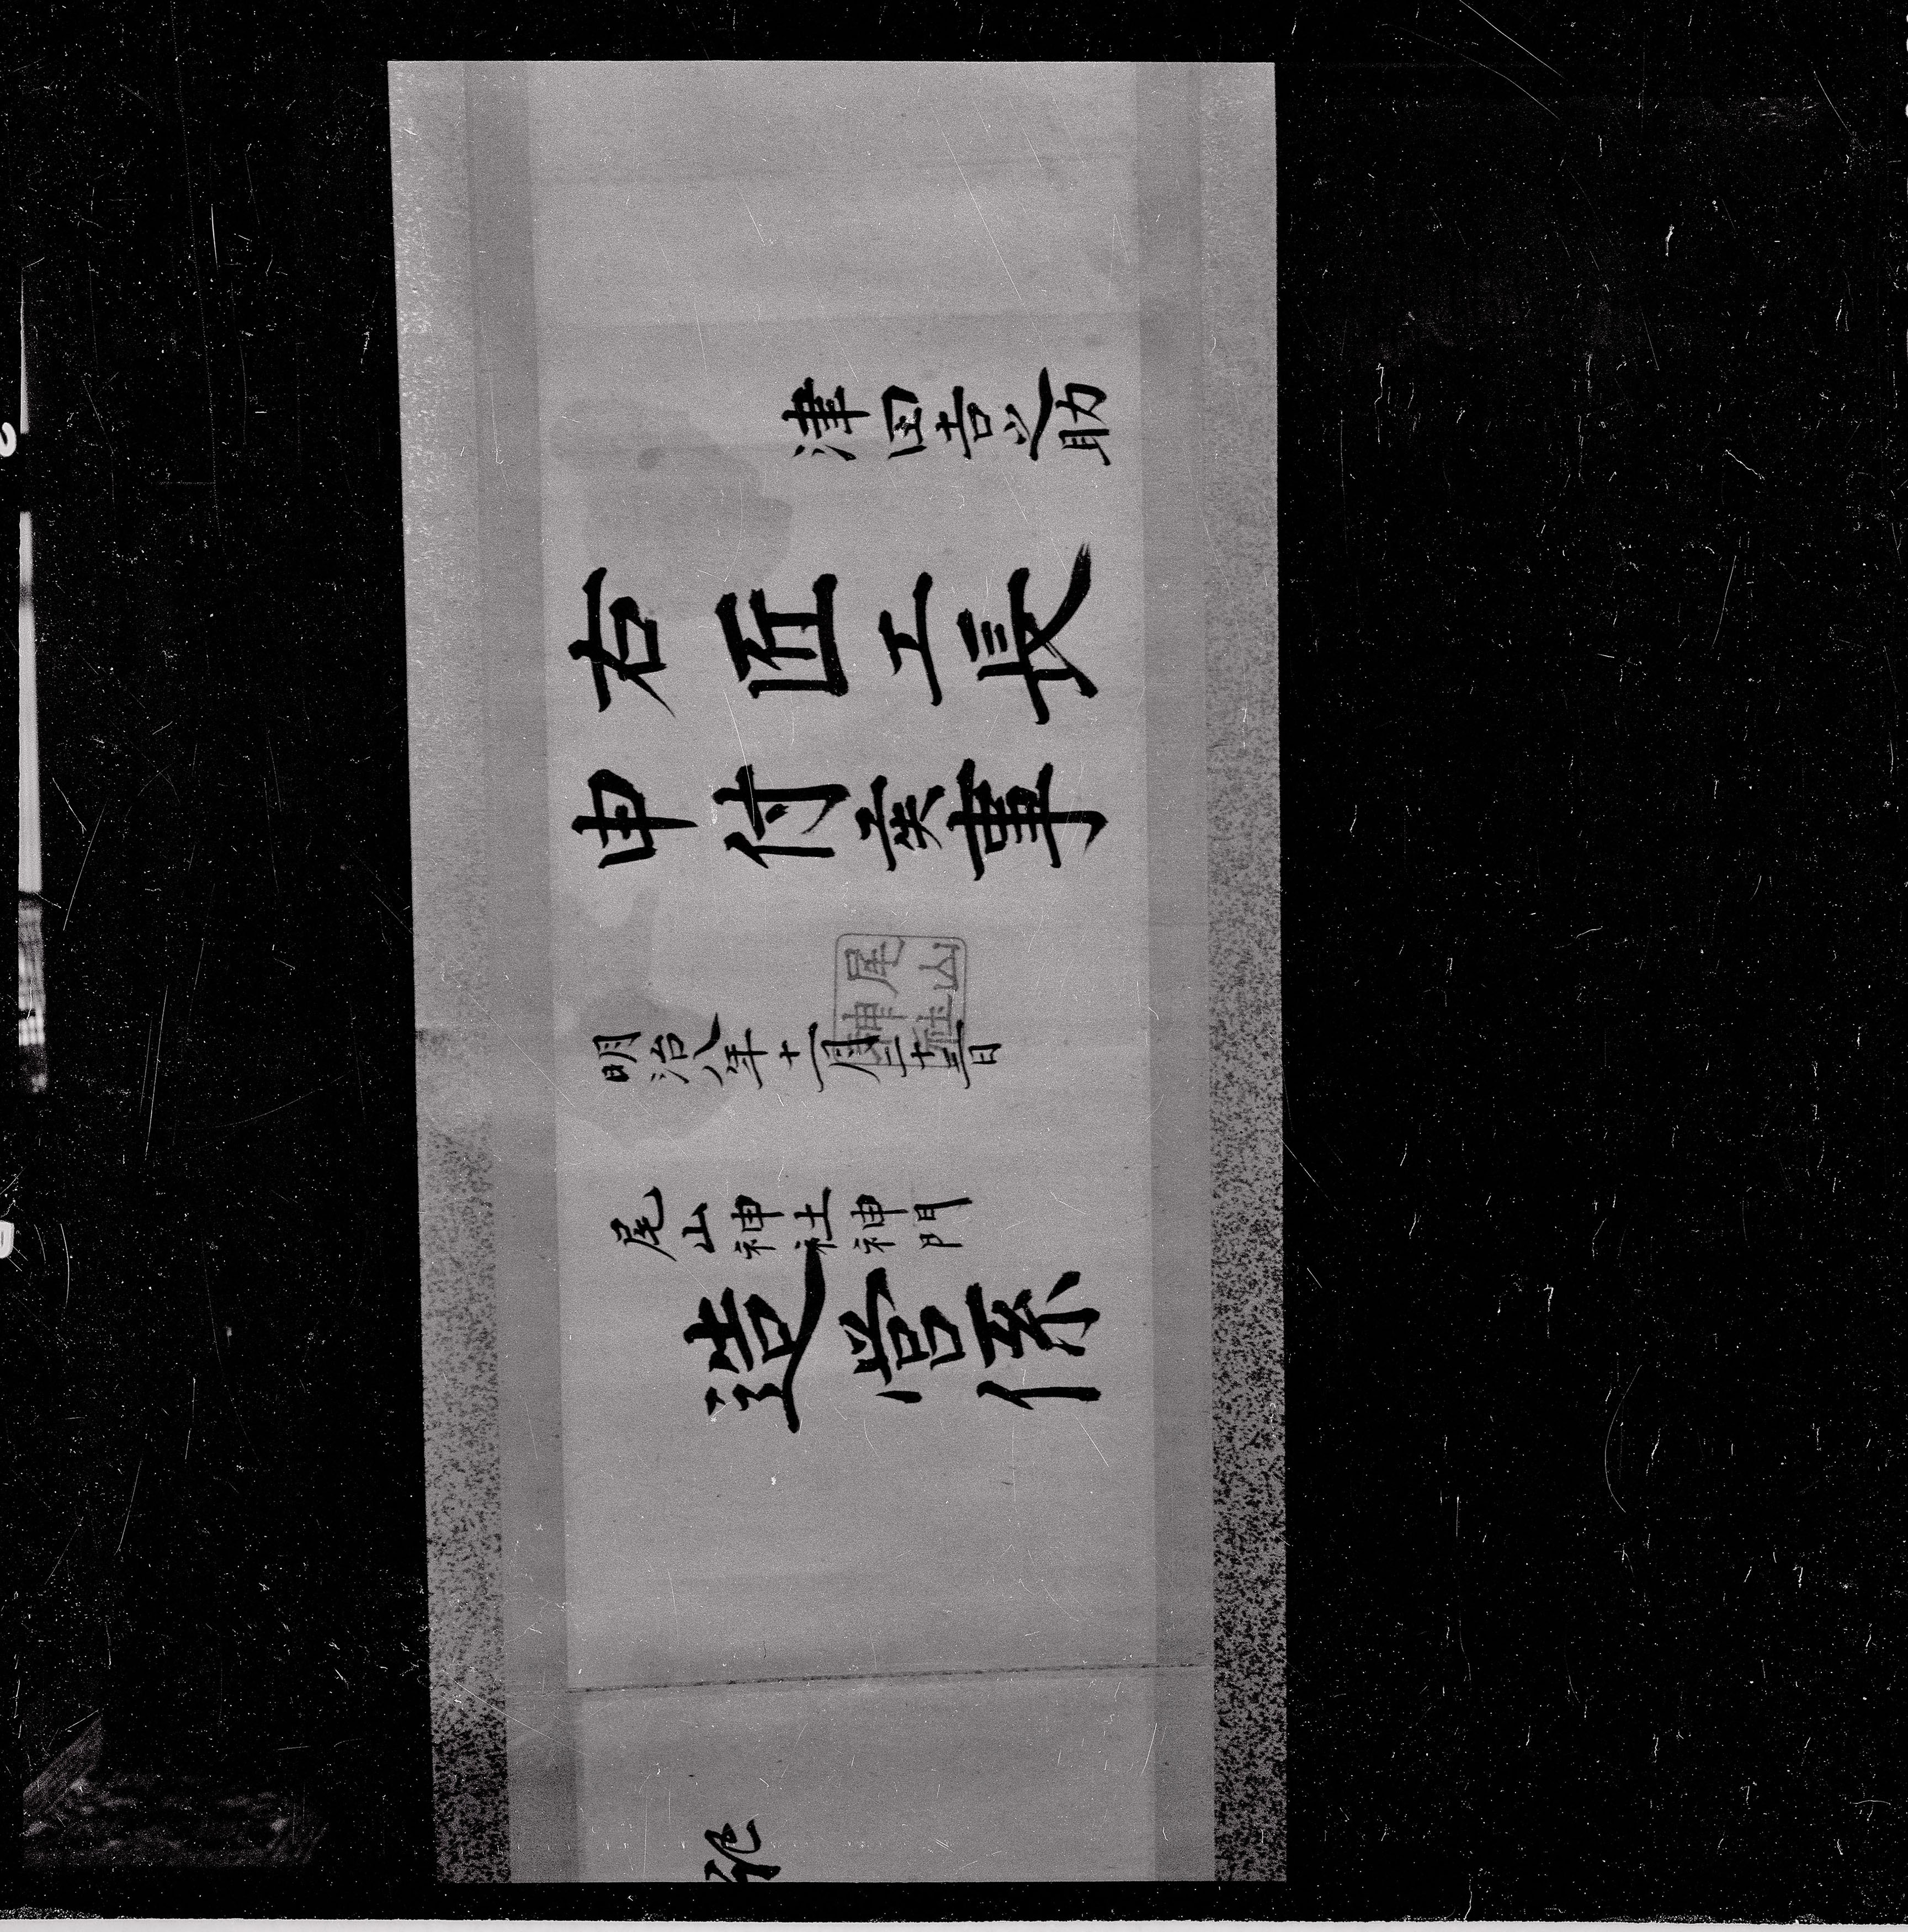 津田吉之助
右匠工長
申付候事
尾山神社
明治八年十一月二十三日
尾山神社神門
造営係